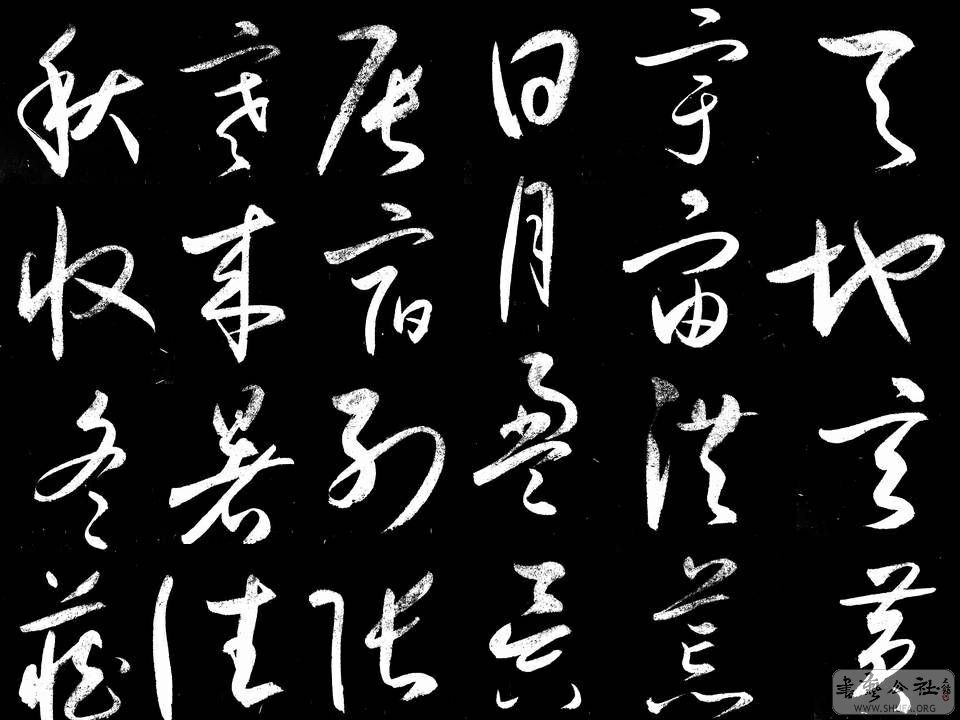 天地玄黄
宇宙洪荒
日月盈昃
辰宿列张
寒来暑往
秋收冬藏
書藝公社
WWW.SHUFA.ORG